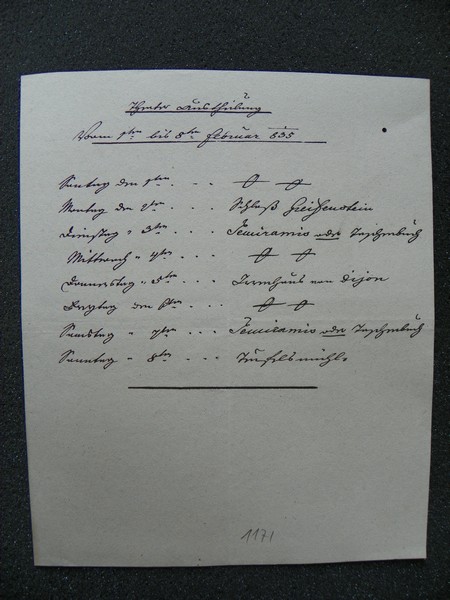 Theater Austheilung
Vom 1ten bis 8ten Februar 835
Sontag den 1ten . . .
Montag den 2ten . . . Schloß Greiffenstein
Dienstag " 3ten . . . Semiramis oder Taschenbuch
Mittwoch " 4ten . . .
Donnerstag " 5ten . . . Irrenhaus von Dijon
Freytag den 6ten . . .
Samstag " 7ten . . . Semiramis oder Taschenbuch
Sonntag " 8ten . . . Teufelsmühle
1171